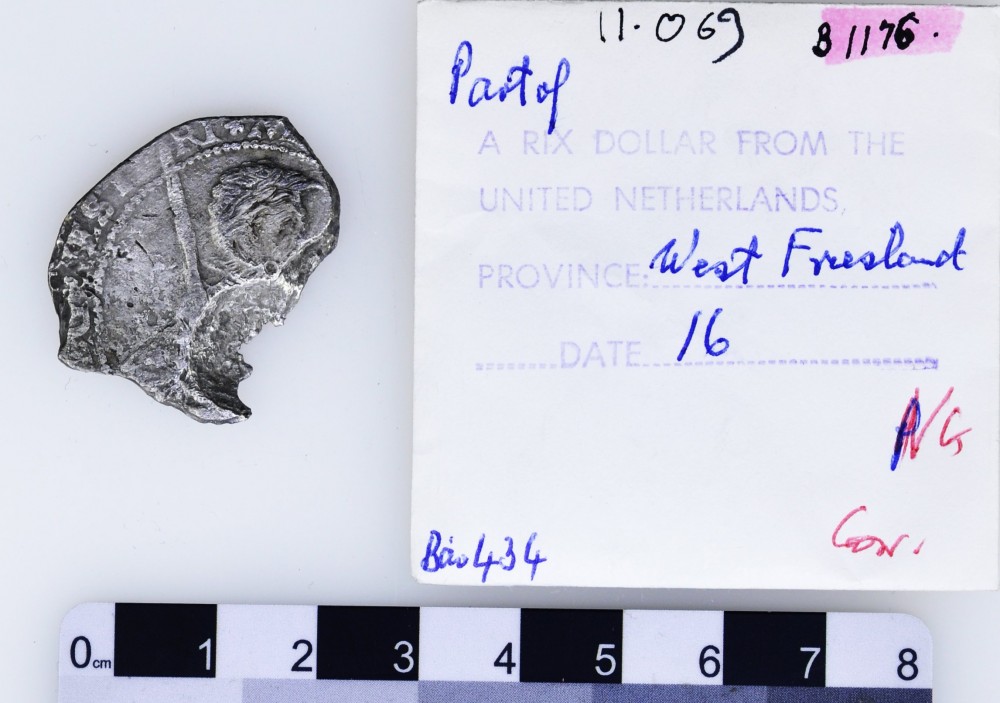 11.069
B 1176.
Part of
A RIX DOLLAR FROM THE
UNITED NETHERLANDS,
PROVINCE: West Friesland
DATE 16
NG
Con.
Bài 434
0 cm 1 2 3 4 5 6 7 8